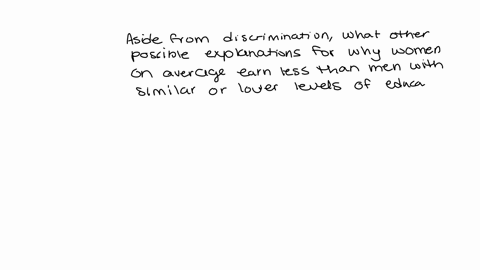 Aside from discrimination, what other
possible explanations for why women
on average earn less than men with
similar or lower levels of educa